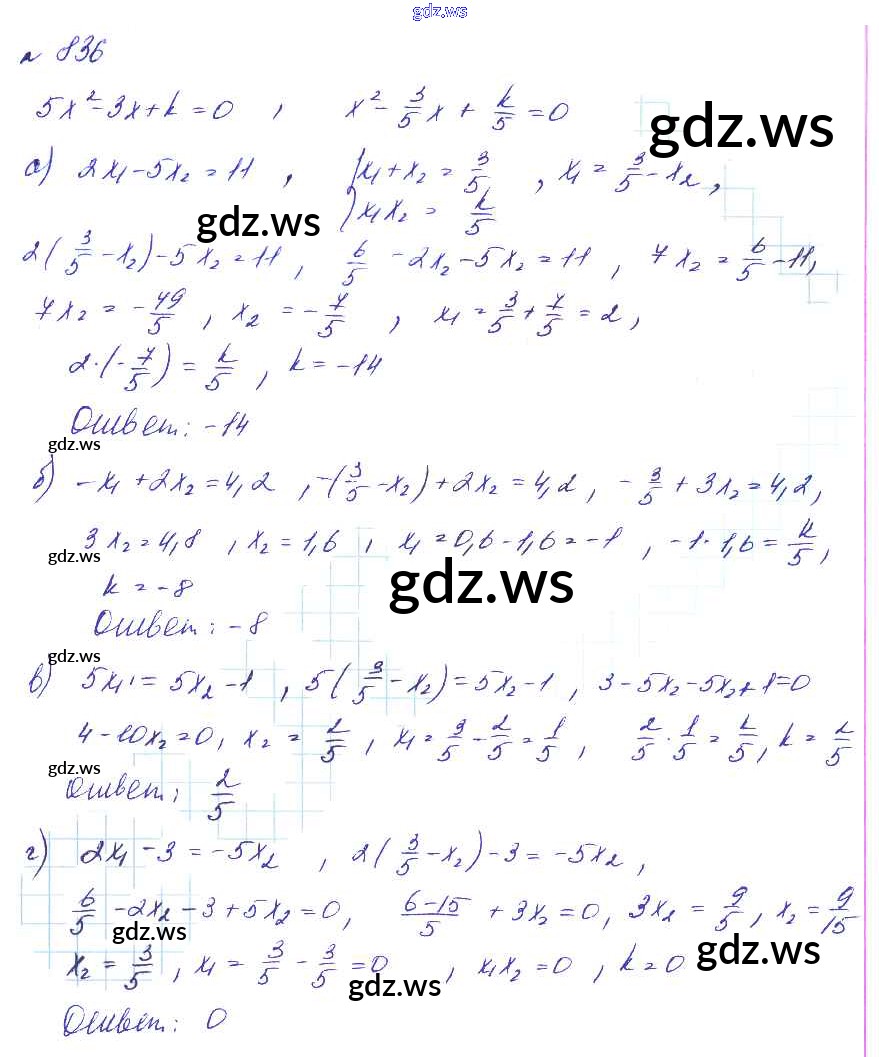 gdz.ws
№ 836
5x² - 3x + k = 0 , x² - 3/5 x + k/5 = 0
gdz.ws
а) 2x₁ - 5x₂ = 11 , { x₁ + x₂ = 3/5 , x₁ = 3/5 - x₂ ,
x₁x₂ = k/5
gdz.ws
2(3/5 - x₂) - 5x₂ = 11 , 6/5 - 2x₂ - 5x₂ = 11 , 7x₂ = 6/5 - 11,
7x₂ = - 49/5 , x₂ = - 7/5 , x₁ = 3/5 + 7/5 = 2 ,
2·(- 7/5) = k/5 , k = -14
Ответ: -14
gdz.ws
б) -x₁ + 2x₂ = 4,2 , -(3/5 - x₂) + 2x₂ = 4,2 , - 3/5 + 3x₂ = 4,2 ,
3x₂ = 4,8 , x₂ = 1,6 , x₁ = 0,6 - 1,6 = -1 , -1 · 1,6 = k/5 ,
gdz.ws
k = -8
gdz.ws
Ответ: -8
gdz.ws
в) 5x₁ = 5x₂ - 1 , 5(3/5 - x₂) = 5x₂ - 1 , 3 - 5x₂ - 5x₂ + 1 = 0
4 - 10x₂ = 0 , x₂ = 2/5 , x₁ = 3/5 - 2/5 = 1/5 , 2/5 · 1/5 = k/5 , k = 2/5
gdz.ws
Ответ: 2/5
г) 2x₁ - 3 = -5x₂ , 2(3/5 - x₂) - 3 = -5x₂ ,
6/5 - 2x₂ - 3 + 5x₂ = 0 , (6-15)/5 + 3x₂ = 0 , 3x₂ = 9/5 , x₂ = 9/15
gdz.ws
x₂ = 3/5 , x₁ = 3/5 - 3/5 = 0 , x₁x₂ = 0 , k = 0
gdz.ws
gdz.ws
Ответ: 0